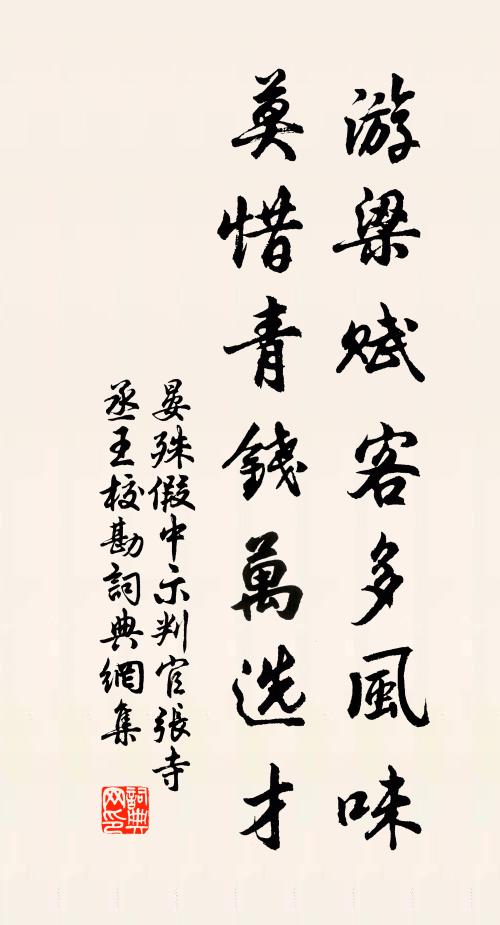 游梁赋客多風味
莫惜青錢萬选才
晏殊假中示判官張寺
丞王校勘詞典網集
詞典网印